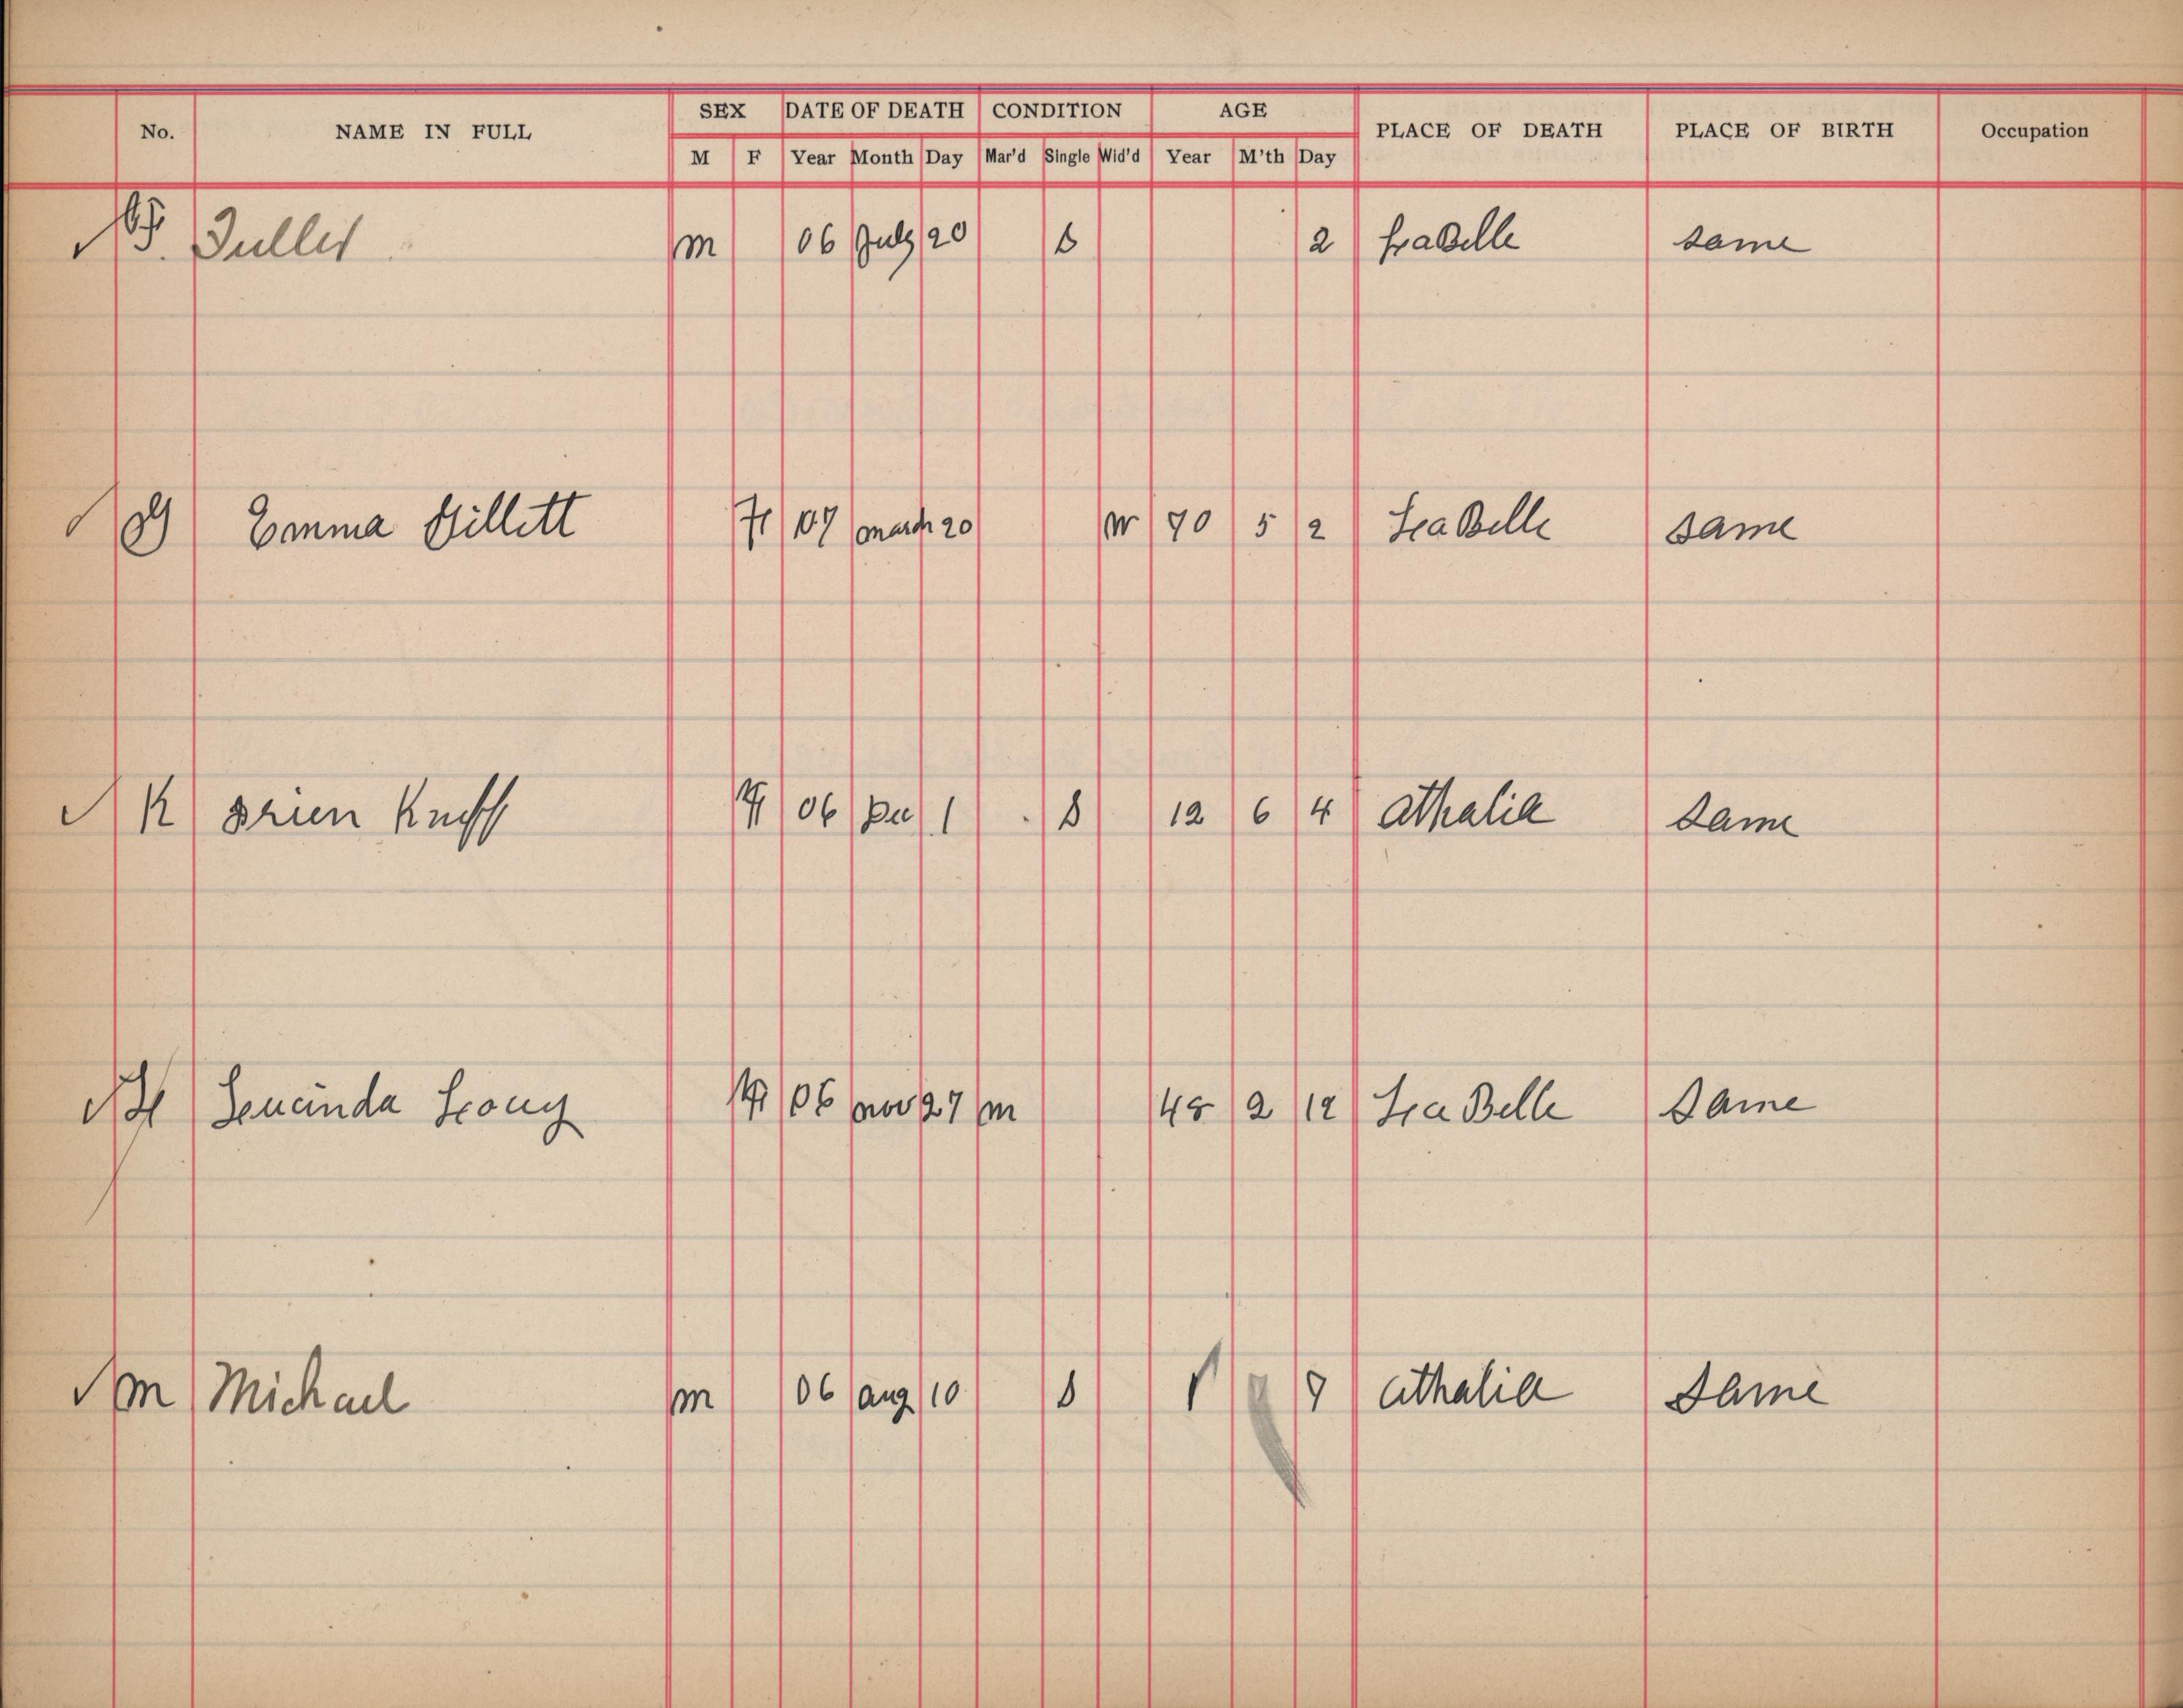 No. NAME IN FULL SEX DATE OF DEATH CONDITION AGE PLACE OF DEATH PLACE OF BIRTH Occupation
M F Year Month Day Mar'd Single Wid'd Year M'th Day
F. Fuller m 06 July 20 S 2 LaBelle same
G Emma Gillett F 07 march 20 W 70 5 2 LaBelle same
K Knuff F 06 Dec 1 S 12 6 4 athalia same
L Lucinda F 06 nov 27 m 48 2 12 La Belle Same
m Michael m 06 aug 10 S 7 athalia Same